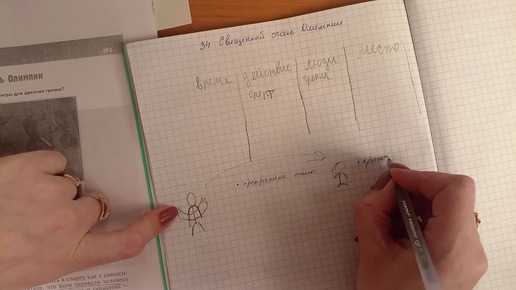 34 Священной огонь Олимпии
время действие люди место
спорт
• прекрасное тело
193
ь Олимпии
игры для древних греков?
к спорту как к священ-
что боги даровали человеку